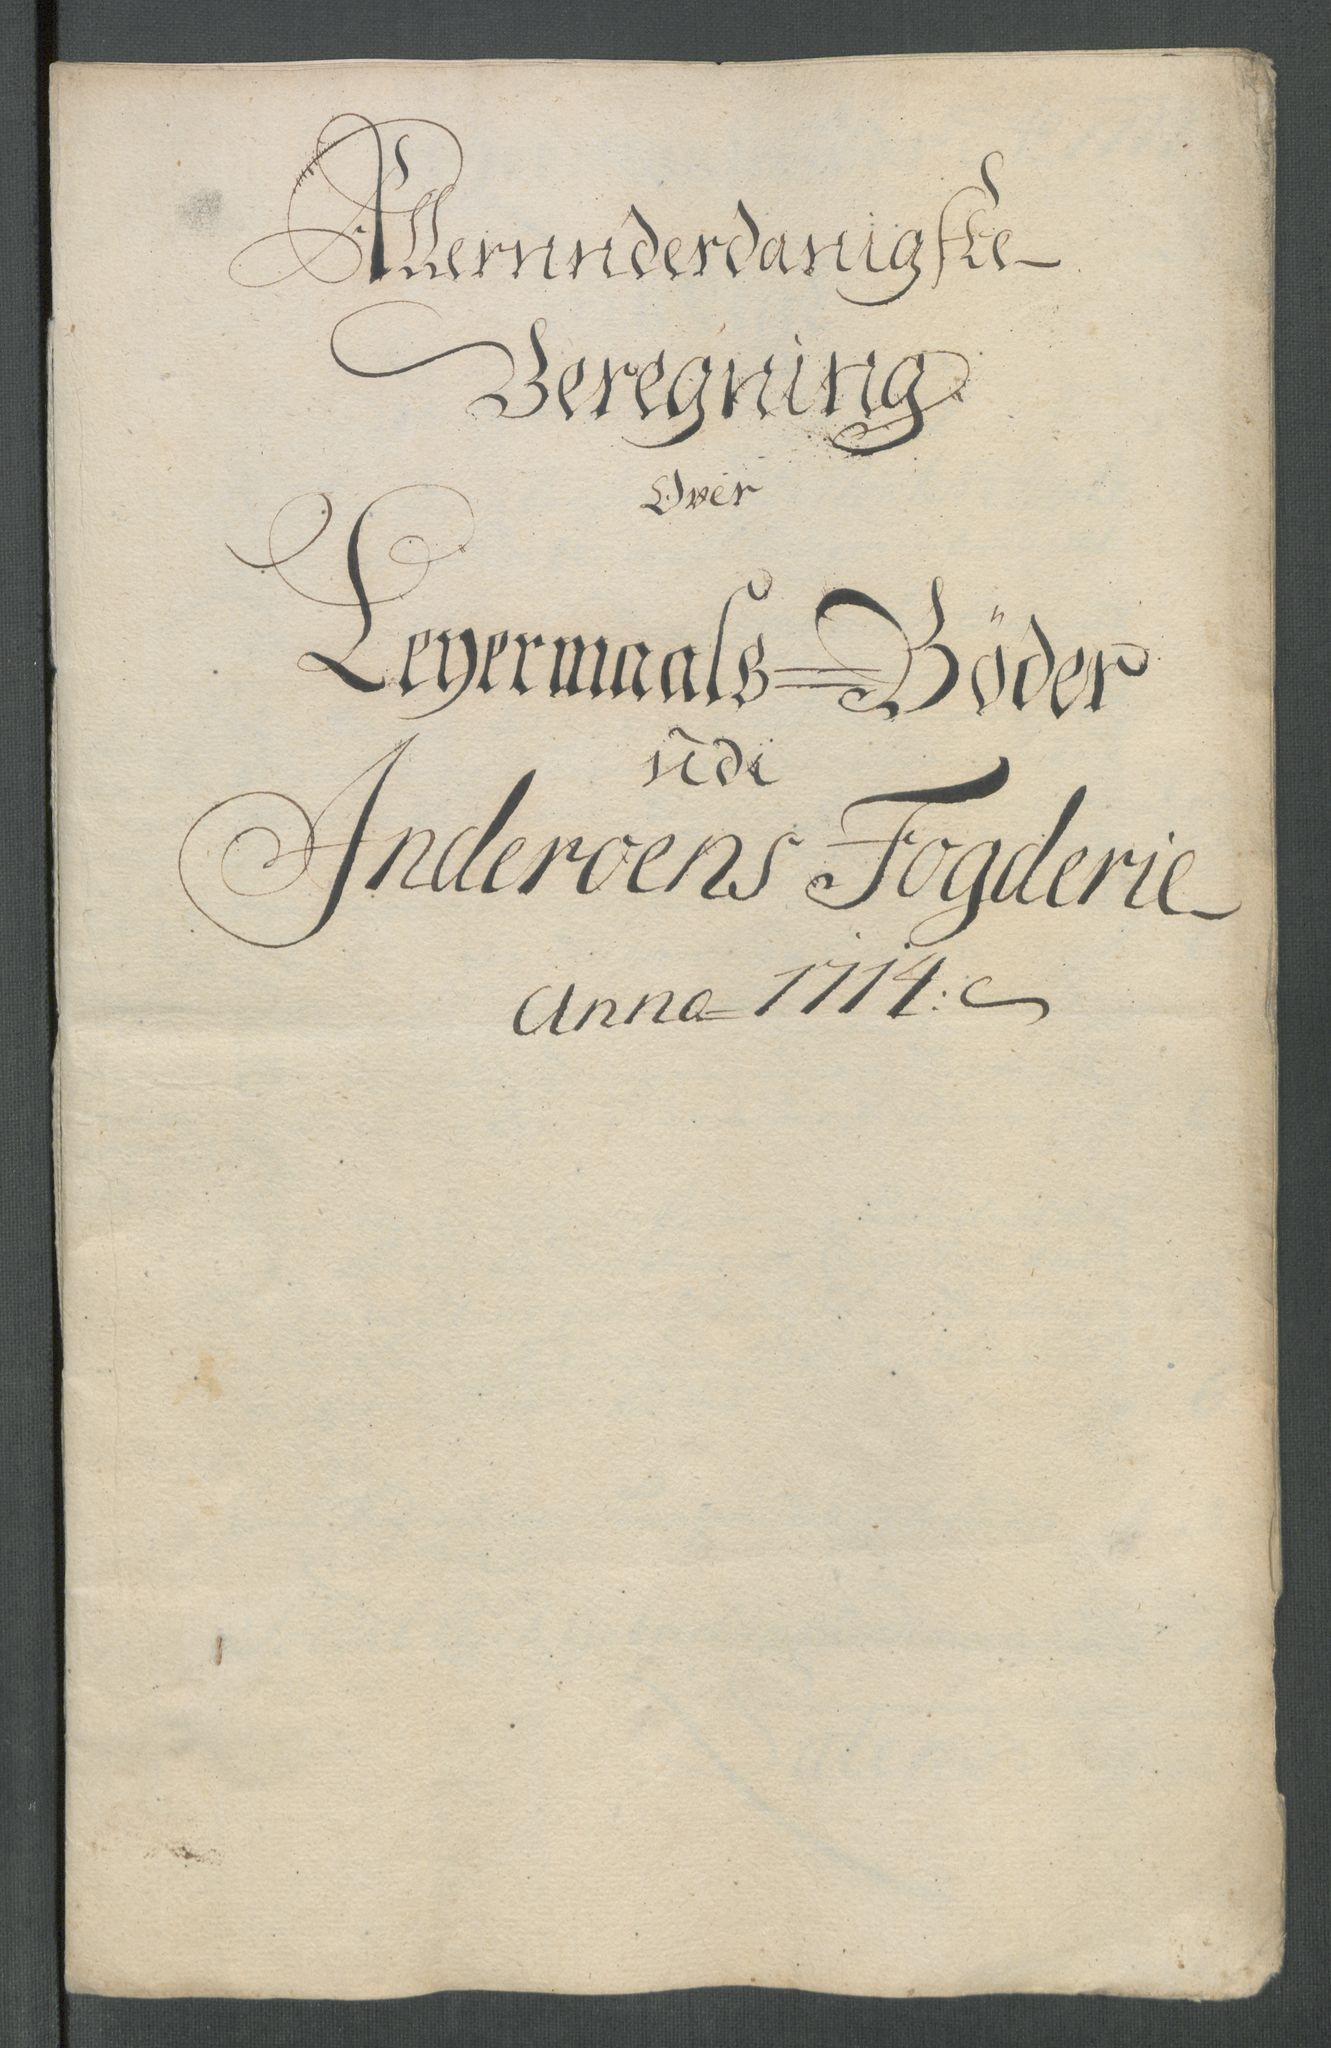 Allerunderdanigste
Beregning
Over
Leyermaals=Böder
udi
Inderoens Fogderie
Anno 1714: